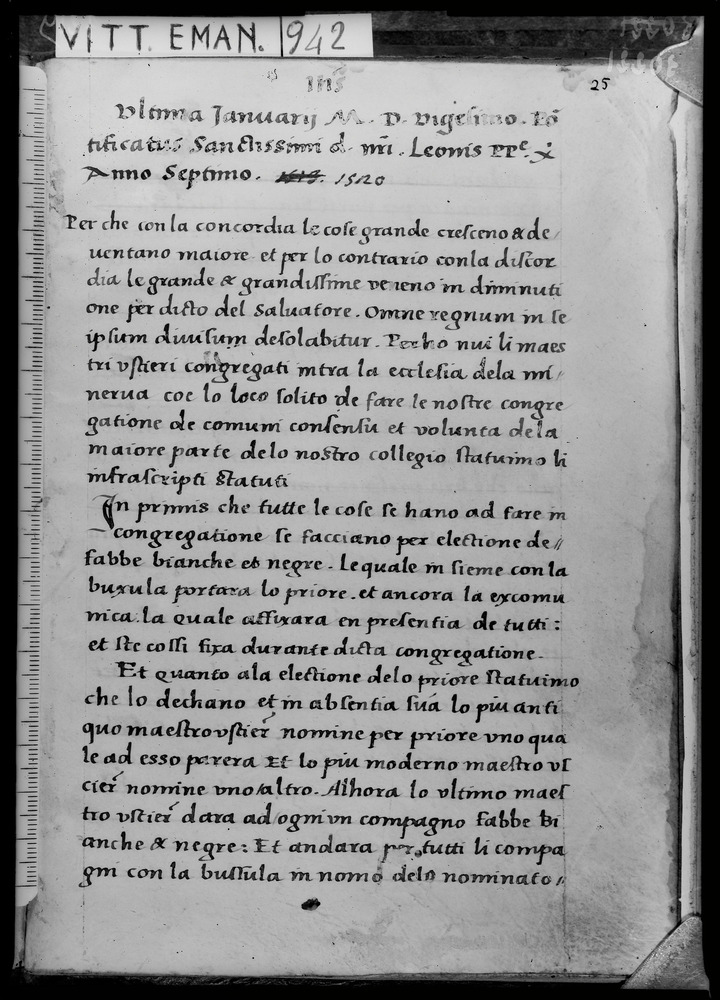 VITT. EMAN. 942
25
IHS
Ultima Januarij M. D. Vigesimo. Po
tificatus Sanctissimi d. nri. Leonis PPe. X
Anno Septimo. 1519. 1520
Per che con la concordia le cose grande cresceno & de/
uentano maiore et per lo contrario con la discor
dia le grande & grandissime veneno in diminuti
one per dicto del Saluatore. Omne regnum in se
ipsum diuisum desolabitur. Perho nui li maes
tri vstieri congregati intra la ecclesia dela mi/
nerua coe lo loco solito de fare le nostre congre
gatione de comuni consensu et volunta dela
maiore parte delo nostro collegio statuimo li
infrascripti statuti
In primis che tutte le cose se hano ad fare in
congregatione se facciano per electione de//
fabbe bianche et negre. Le quale in sieme con la
buxula portara lo priore. et ancora la excomu
nica. la quale affixara en presentia de tutti:
et ste cossi fixa durante dicta congregatione.
Et quanto ala electione delo priore statuimo
che lo dechano et in absentia sua lo piu anti
quo maestro vstier nomine per priore vno qua
le ad esso parera Et lo piu moderno maestro vs
cier nomine vno/altro. Alhora lo vltimo maes
tro vstier dara ad ogni vn compagno fabbe bi
anche & negre: Et andara per tutti li compa
gni con la bussula in nome delo nominato//